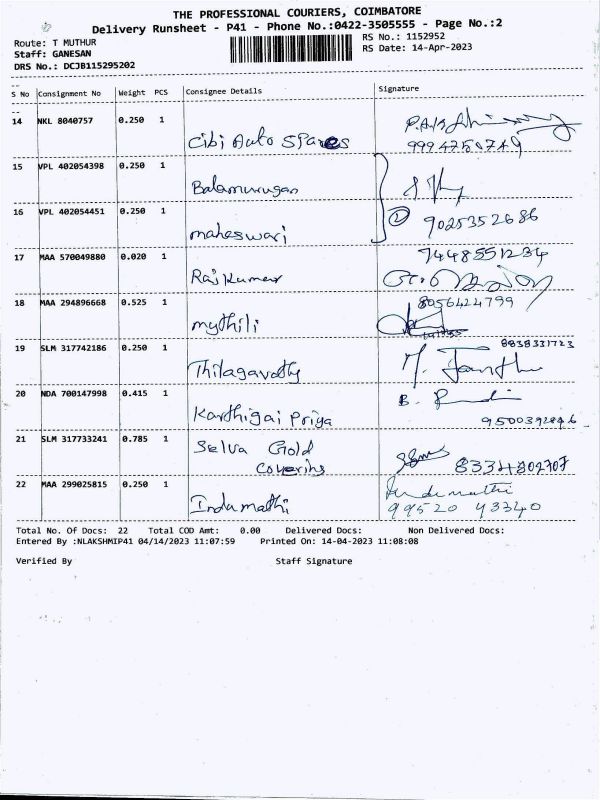 THE PROFESSIONAL COURIERS, COIMBATORE
Delivery Runsheet - P41 - Phone No.:0422-3505555 - Page No.:2
Route: T MUTHUR
RS No.: 1152952
Staff: GANESAN
RS Date: 14-Apr-2023
DRS No.: DCJB115295202
S No Consignment No Weight PCS Consignee Details Signature
14 NKL 8040757 0.250 1 Cibi Auto Spares
9994758749
15 VPL 402054398 0.250 1 Balamurugan
16 VPL 402054451 0.250 1 maheswari 2 9025352686
17 MAA 570049880 0.020 1 Raj Kumar 7448551234
18 MAA 294896668 0.525 1 mythili 8056424799
19 SLM 317742186 0.250 1 Thilagavathy 8838331723
20 NDA 700147998 0.415 1 Karthigai Priya B.
21 SLM 317733241 0.785 1 Selva Gold
Covering
22 MAA 299025815 0.250 1 Indumathi Indumathi
99520 43340
Total No. Of Docs: 22 Total COD Amt: 0.00 Delivered Docs: Non Delivered Docs:
Entered By :NLAKSHMIP41 04/14/2023 11:07:59 Printed On: 14-04-2023 11:08:08
Verified By Staff Signature